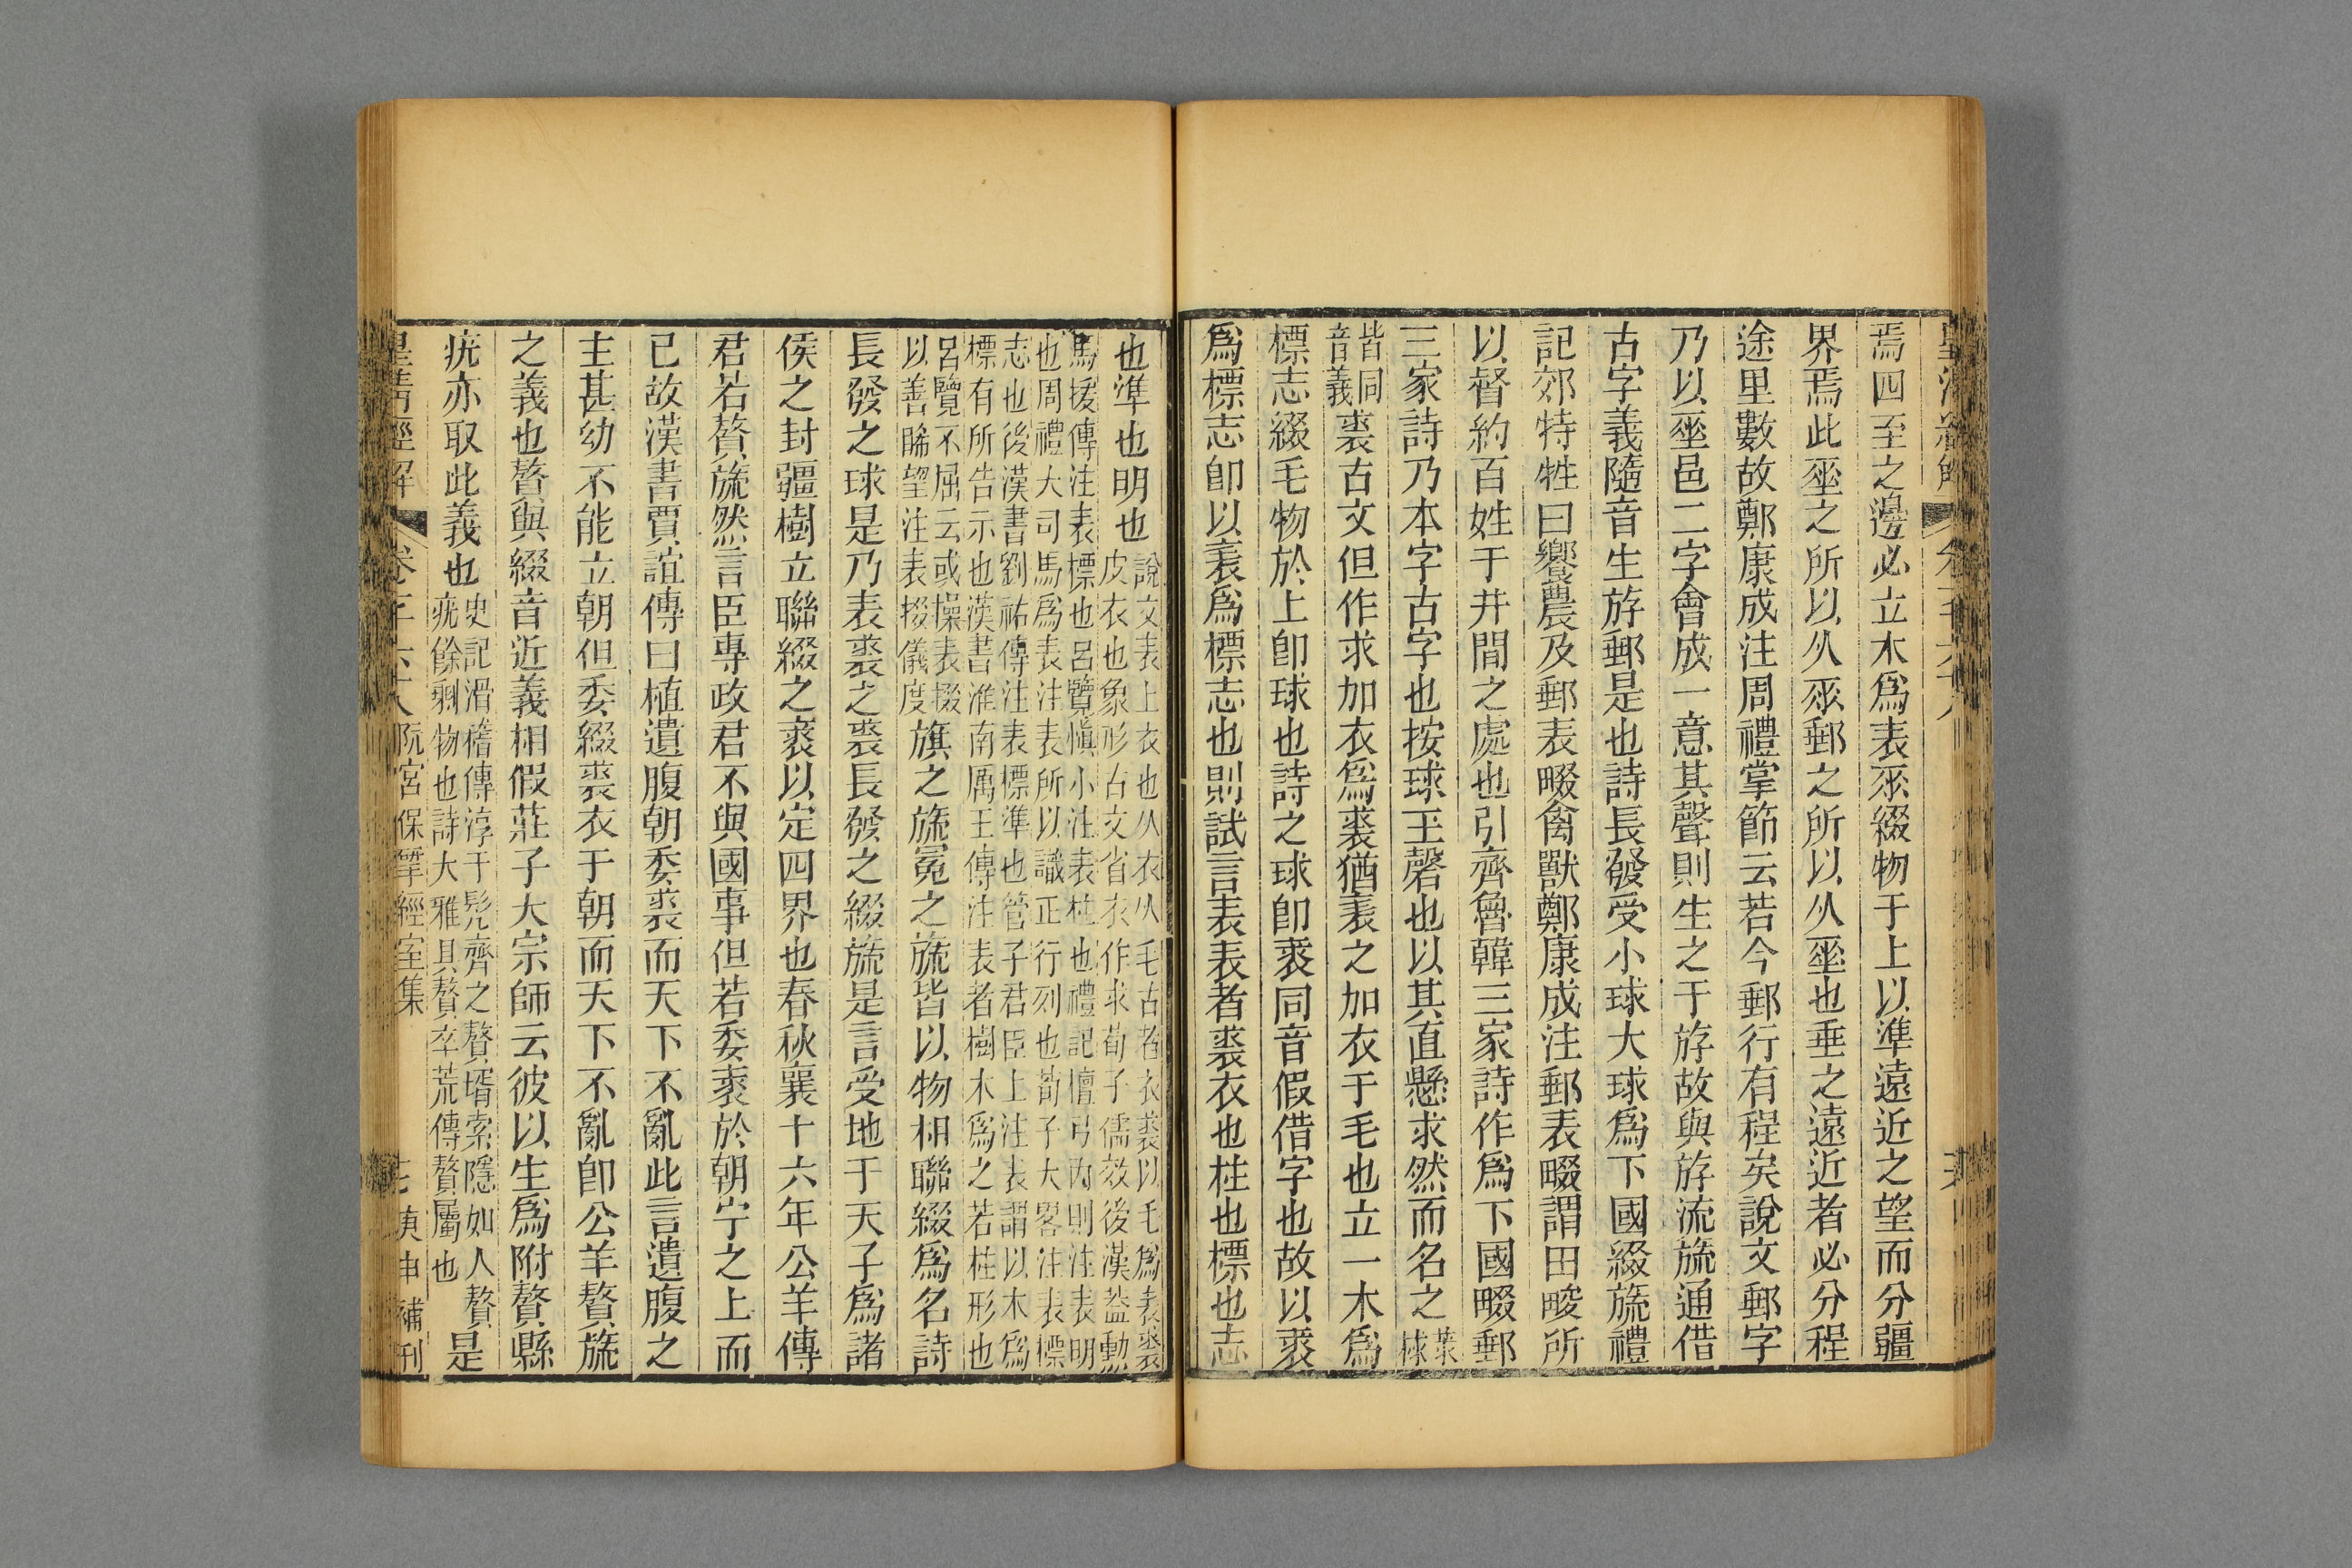 焉四至之邊必立木爲表𠂹綴物于上以準遠近之望而分疆
界焉此𡍮之所以从𠂹郵之所以从𡍮也垂之遠近者必分程
途里數故鄭康成注周禮掌節云若今郵行有程矣說文郵字
乃以𡍮邑二字會成一意其聲則生之于斿故與斿流旒通借
古字義隨音生斿郵是也詩長發受小球大球爲下國綴旒禮
記郊特牲曰饗農及郵表畷禽獸鄭康成注郵表畷謂田畯所
以督約百姓于井間之處也引齊魯韓三家詩作爲下國畷郵
三家詩乃本字古字也按球玉磬也以其直懸求然而名之
皆同
音義
裘古文但作求加衣爲裘猶表之加衣于毛也立一木爲
標志綴毛物於上卽球也詩之球卽裘同音假借字也故以裘
爲標志卽以表爲標志也則試言表表者裘衣也柱也標也志
也準也明也
說文表上衣也从衣从毛古者衣裘以毛爲表裘
皮衣也象形古文省衣作求荀子儒效後漢蓋勳
馬援傳注表標也呂覽愼小注表柱也禮記檀弓內則注表明
也周禮大司馬爲表注表所以識正行列也荀子大畧注表標
志也後漢書劉祐傳注表標準也管子君臣上注表謂以木爲
標有所告示也漢書淮南厲王傳注表者樹木爲之若柱形也
呂覽不屈云或操表掇
以善睎望注表掇儀度
旗之旒冕之旒皆以物相聯綴爲名詩
長發之球是乃表裘之裘長發之綴旒是言受地于天子爲諸
侯之封疆樹立聯綴之裘以定四界也春秋襄十六年公羊傳
君若贅旒然言臣專政君不與國事但若委裘於朝宁之上而
已故漢書賈誼傳曰植遺腹朝委裘而天下不亂此言遺腹之
主甚幼不能立朝但委綴裘衣于朝而天下不亂卽公羊贅旒
之義也贅與綴音近義相假莊子大宗師云彼以生爲附贅縣
疣亦取此義也
史記滑稽傳淳于髡齊之贅壻索隱如人贅
疣餘剩物也詩大雅具贅卒荒傳贅屬也
是
阮宮保揅經室集
庚申補刊